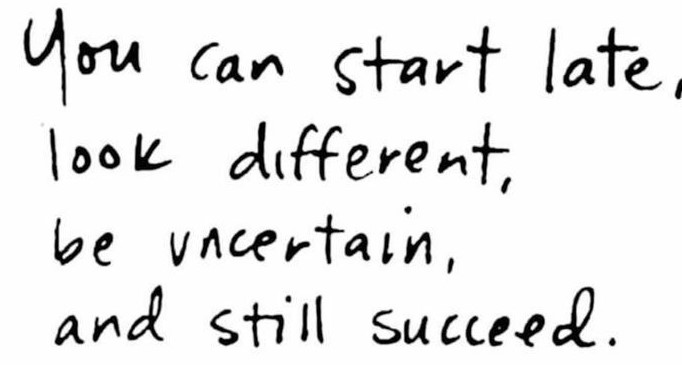 You can start late,
look different,
be uncertain,
and still succeed.